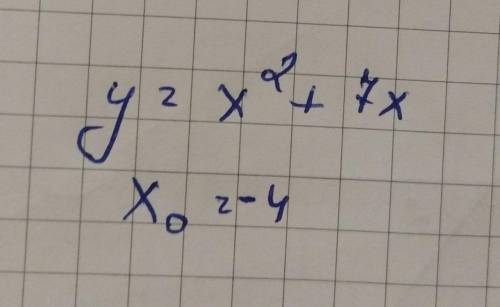 y = x² + 7x
x₀ = -4